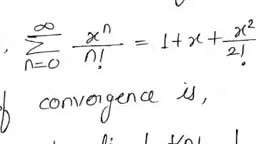 , ∞∑n=0 xⁿ/n! = 1 + x + x²/2!
convergence is,